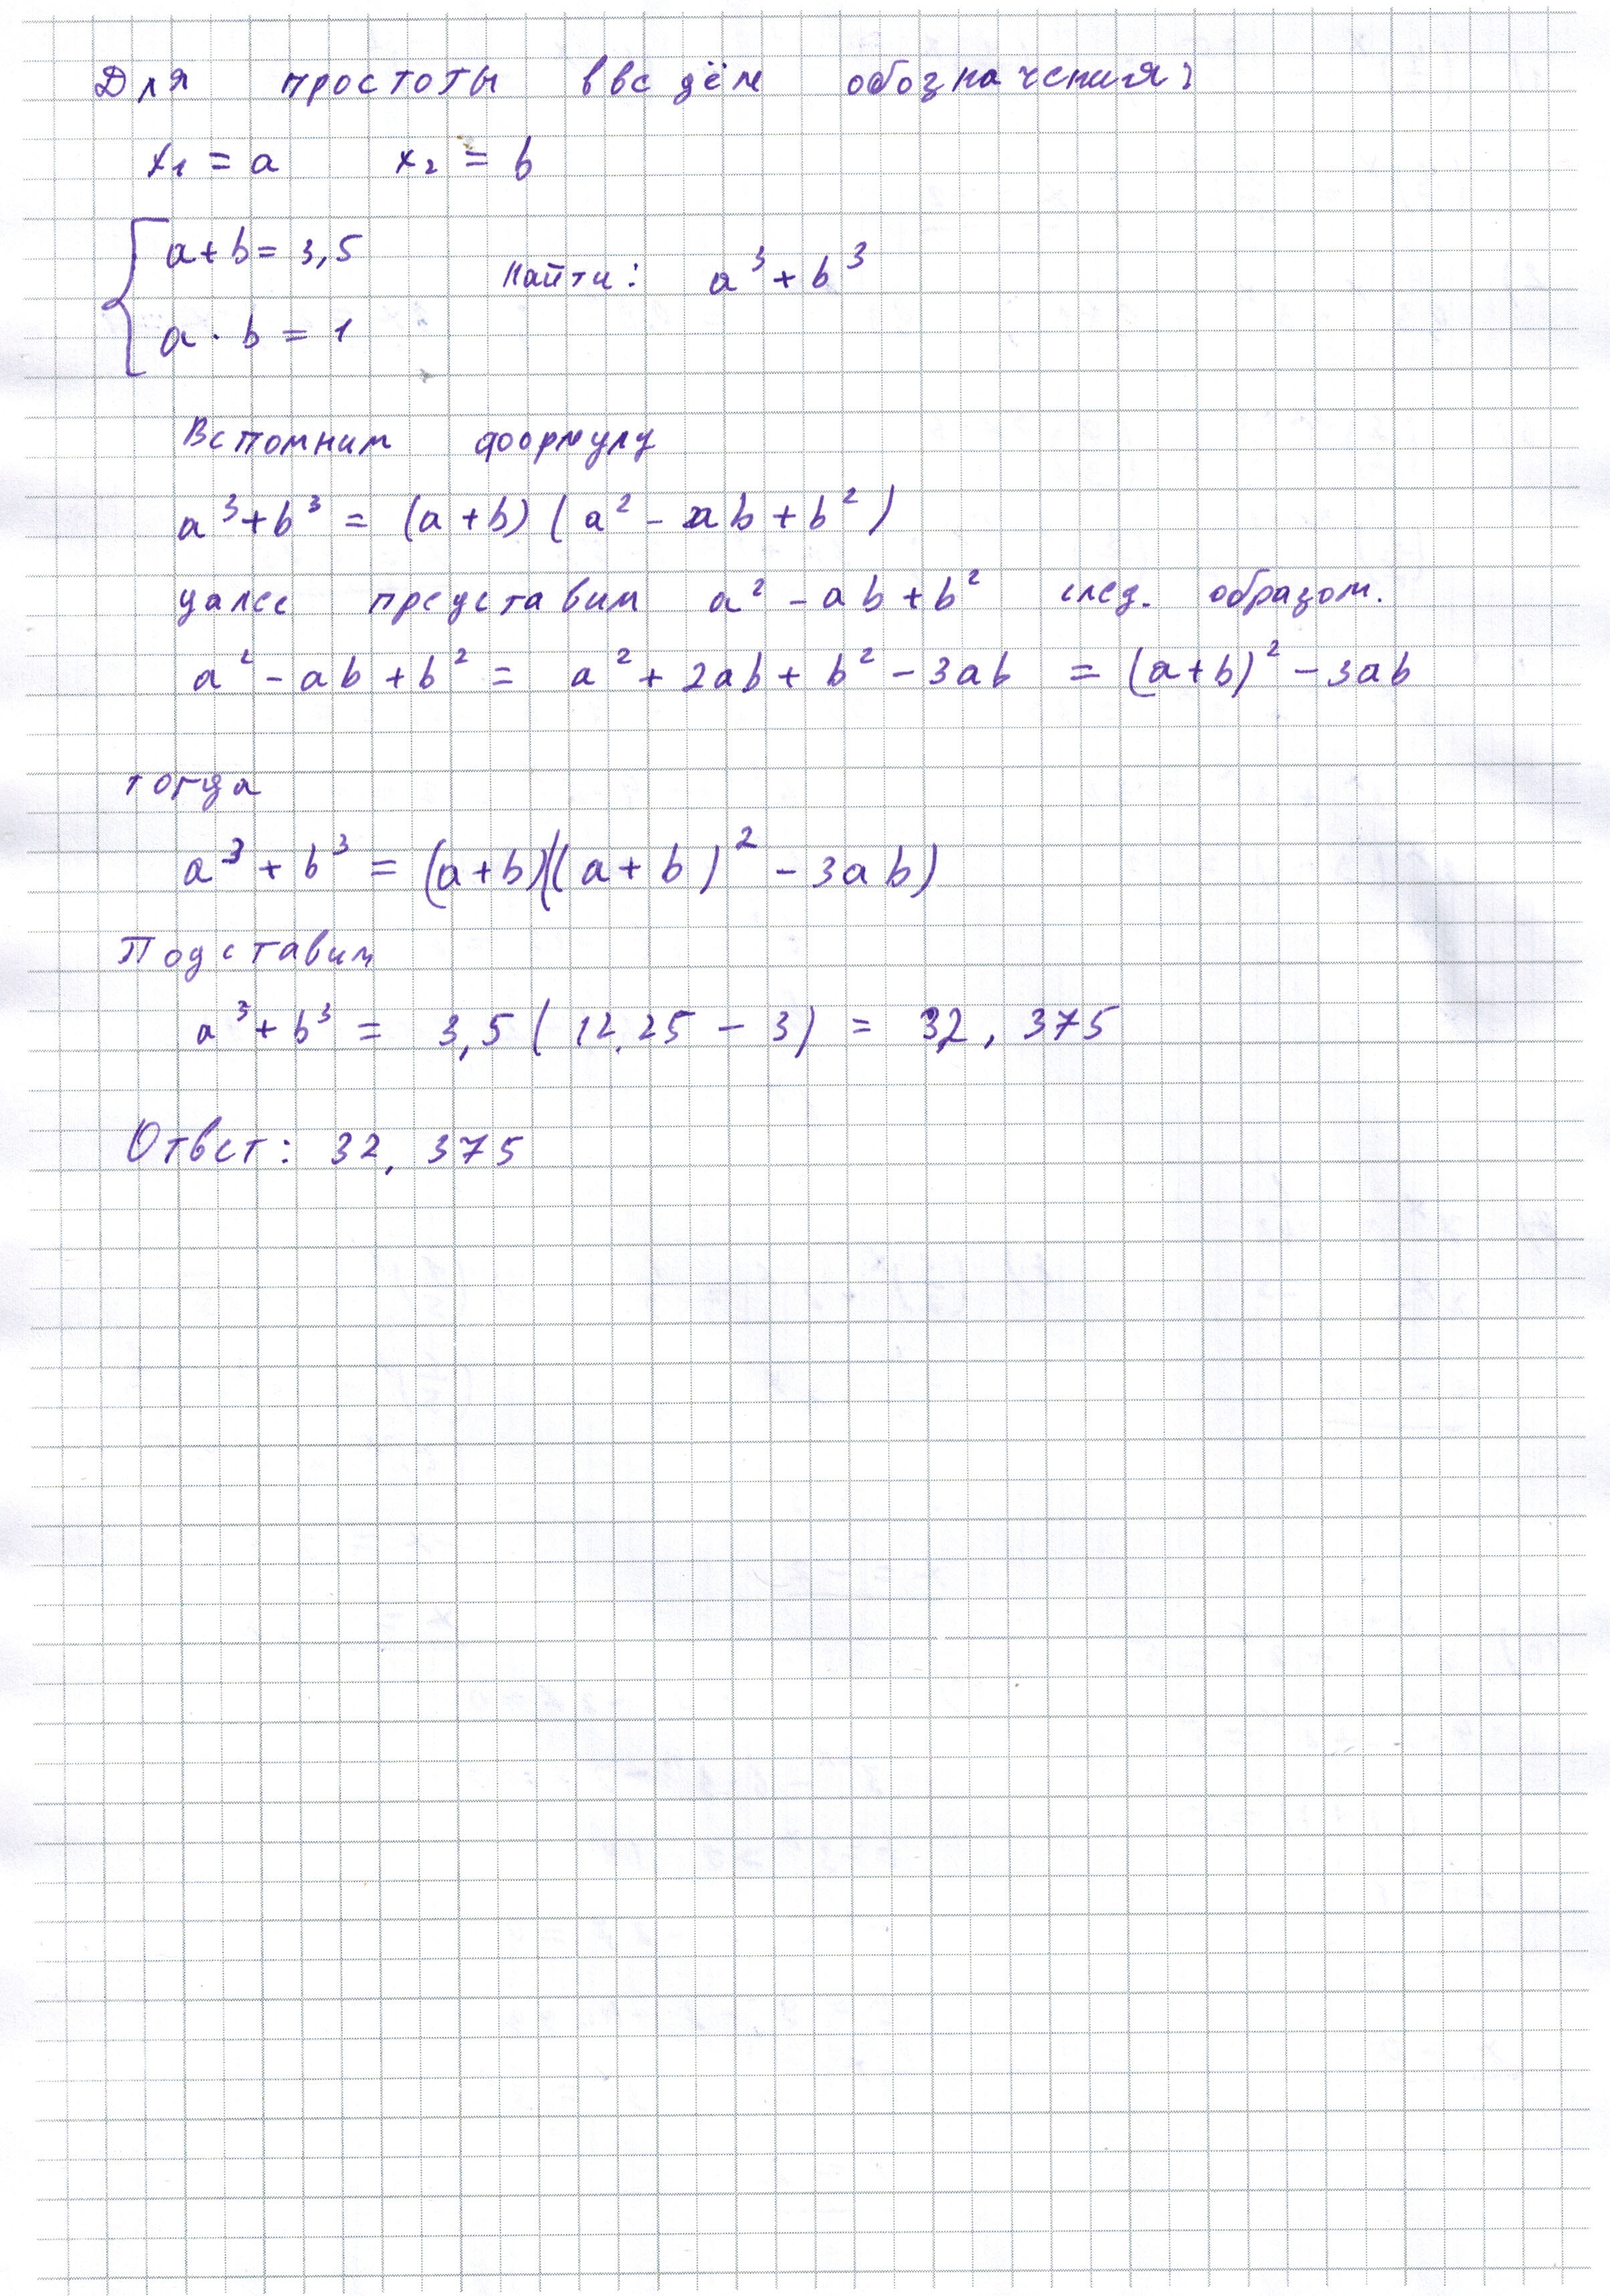 Для простоты введём обозначения:
x₁ = a x₂ = b
a + b = 3,5
Найти: a³ + b³
a · b = 1
Вспомним формулу
a³ + b³ = (a + b) (a² - ab + b²)
далее представим a² - ab + b² след. образом.
a² - ab + b² = a² + 2ab + b² - 3ab = (a+b)² - 3ab
тогда
a³ + b³ = (a+b)((a+b)² - 3ab)
Подставим
a³ + b³ = 3,5 (12,25 - 3) = 32,375
Ответ: 32,375